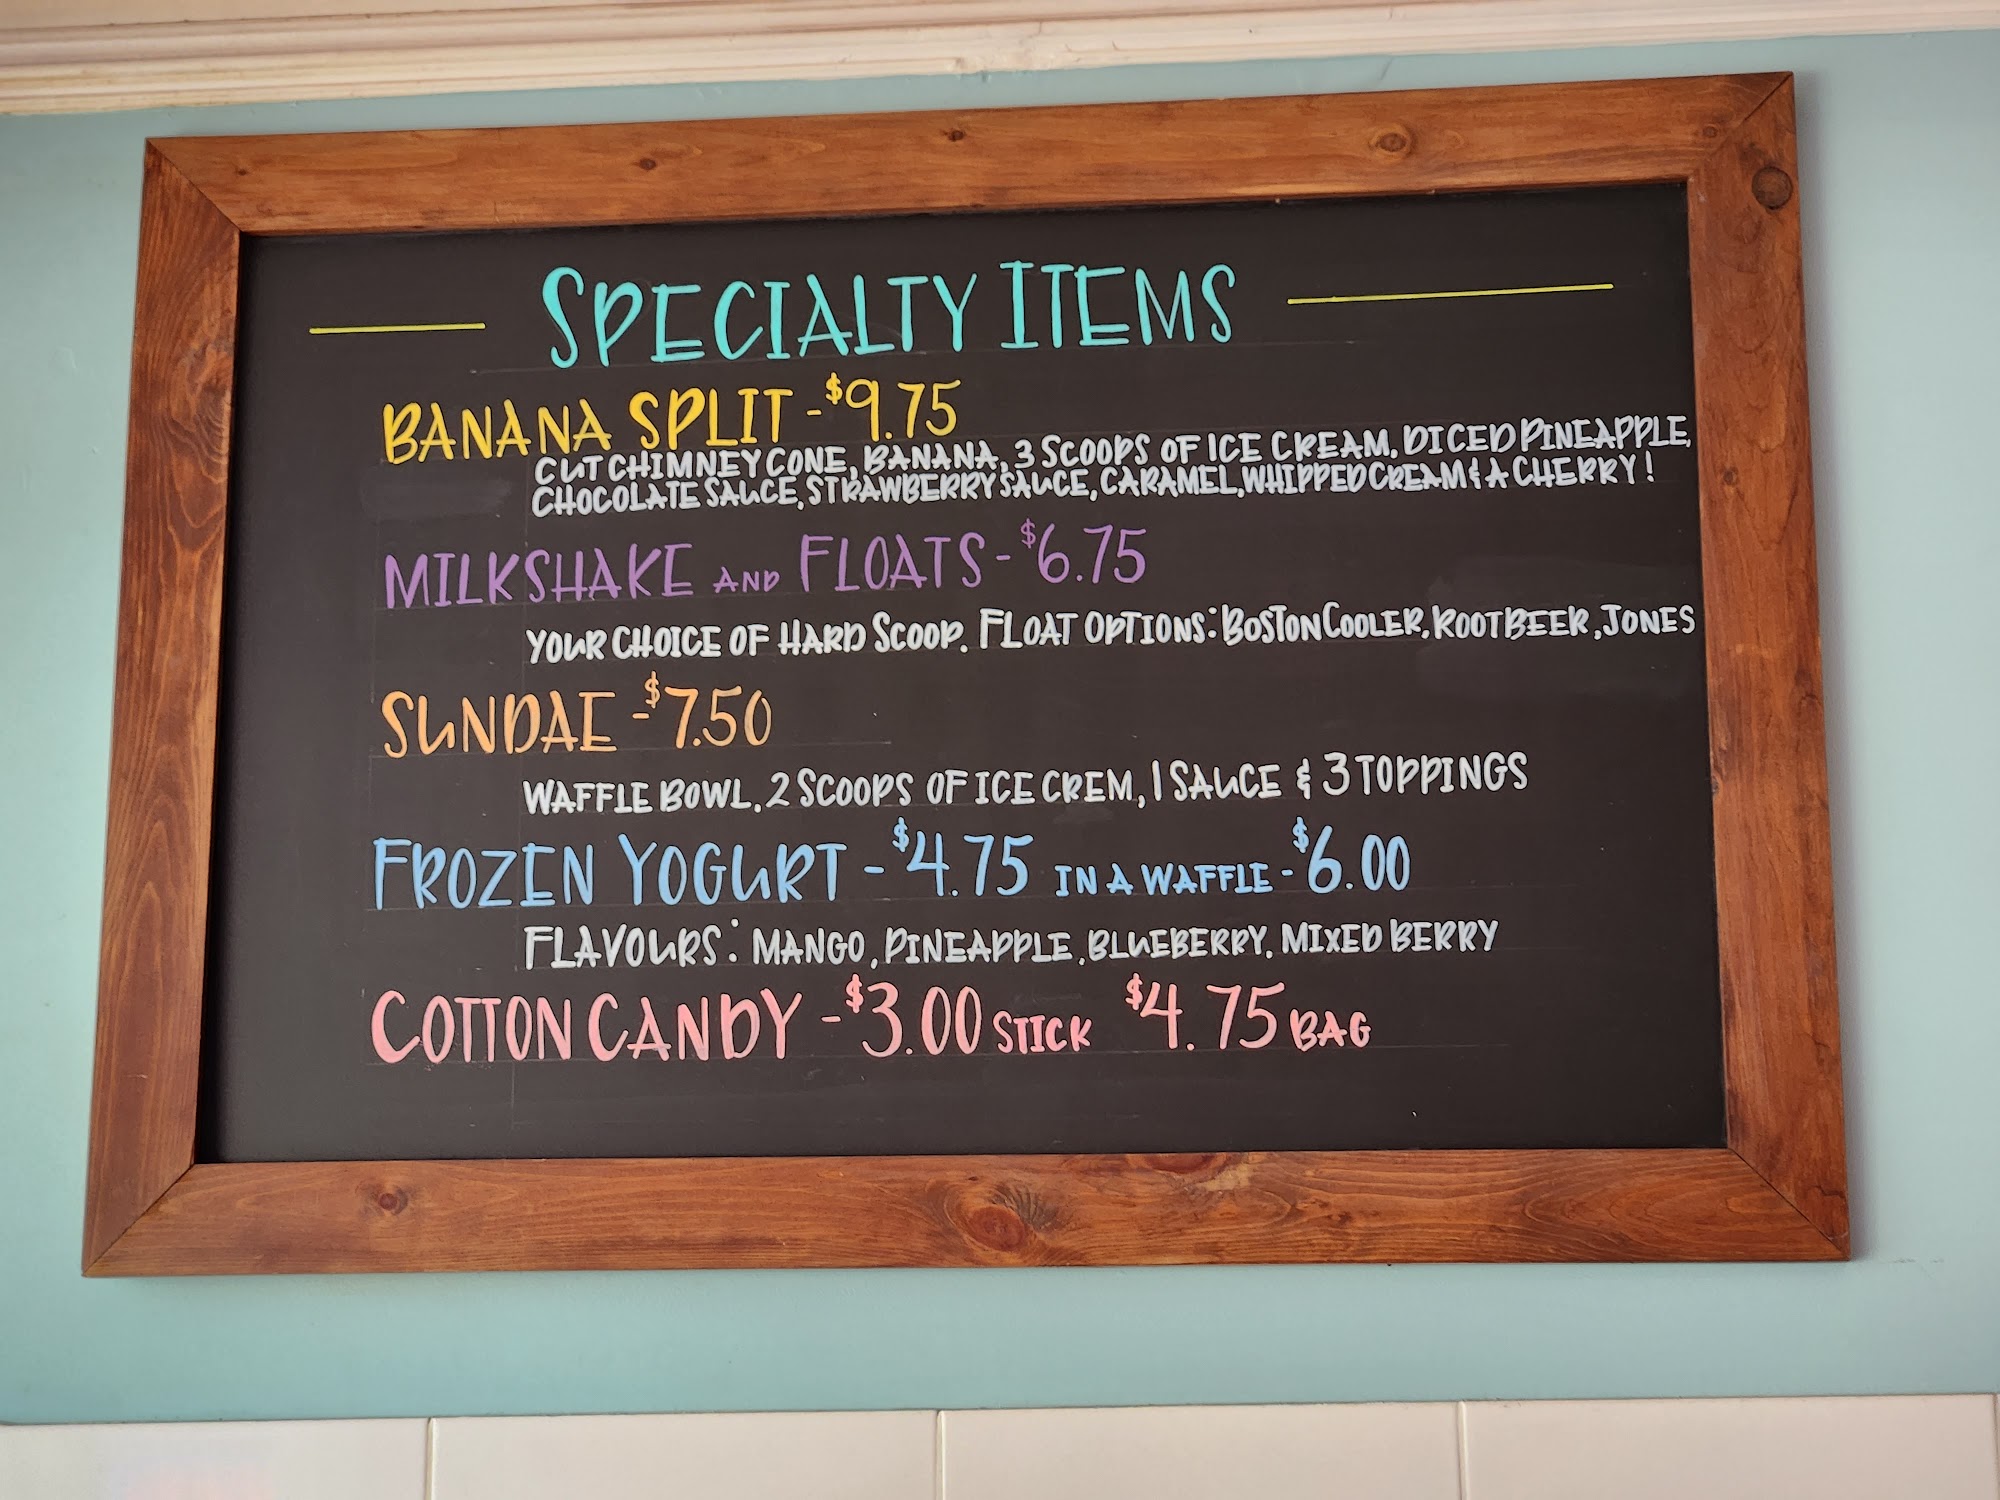 SPECIALTY ITEMS
BANANA SPLIT - $9.75
CUT CHIMNEY CONE, BANANA, 3 SCOOPS OF ICE CREAM, DICED PINEAPPLE,
CHOCOLATE SAUCE, STRAWBERRY SAUCE, CARAMEL, WHIPPED CREAM & A CHERRY!
MILKSHAKE AND FLOATS - $6.75
YOUR CHOICE OF HARD SCOOP. FLOAT OPTIONS: BOSTON COOLER, ROOTBEER, JONES
SUNDAE - $7.50
WAFFLE BOWL, 2 SCOOPS OF ICE CREM, 1 SAUCE & 3 TOPPINGS
FROZEN YOGURT - $4.75 IN A WAFFLE - $6.00
FLAVOURS: MANGO, PINEAPPLE, BLUEBERRY, MIXED BERRY
COTTON CANDY - $3.00 STICK $4.75 BAG